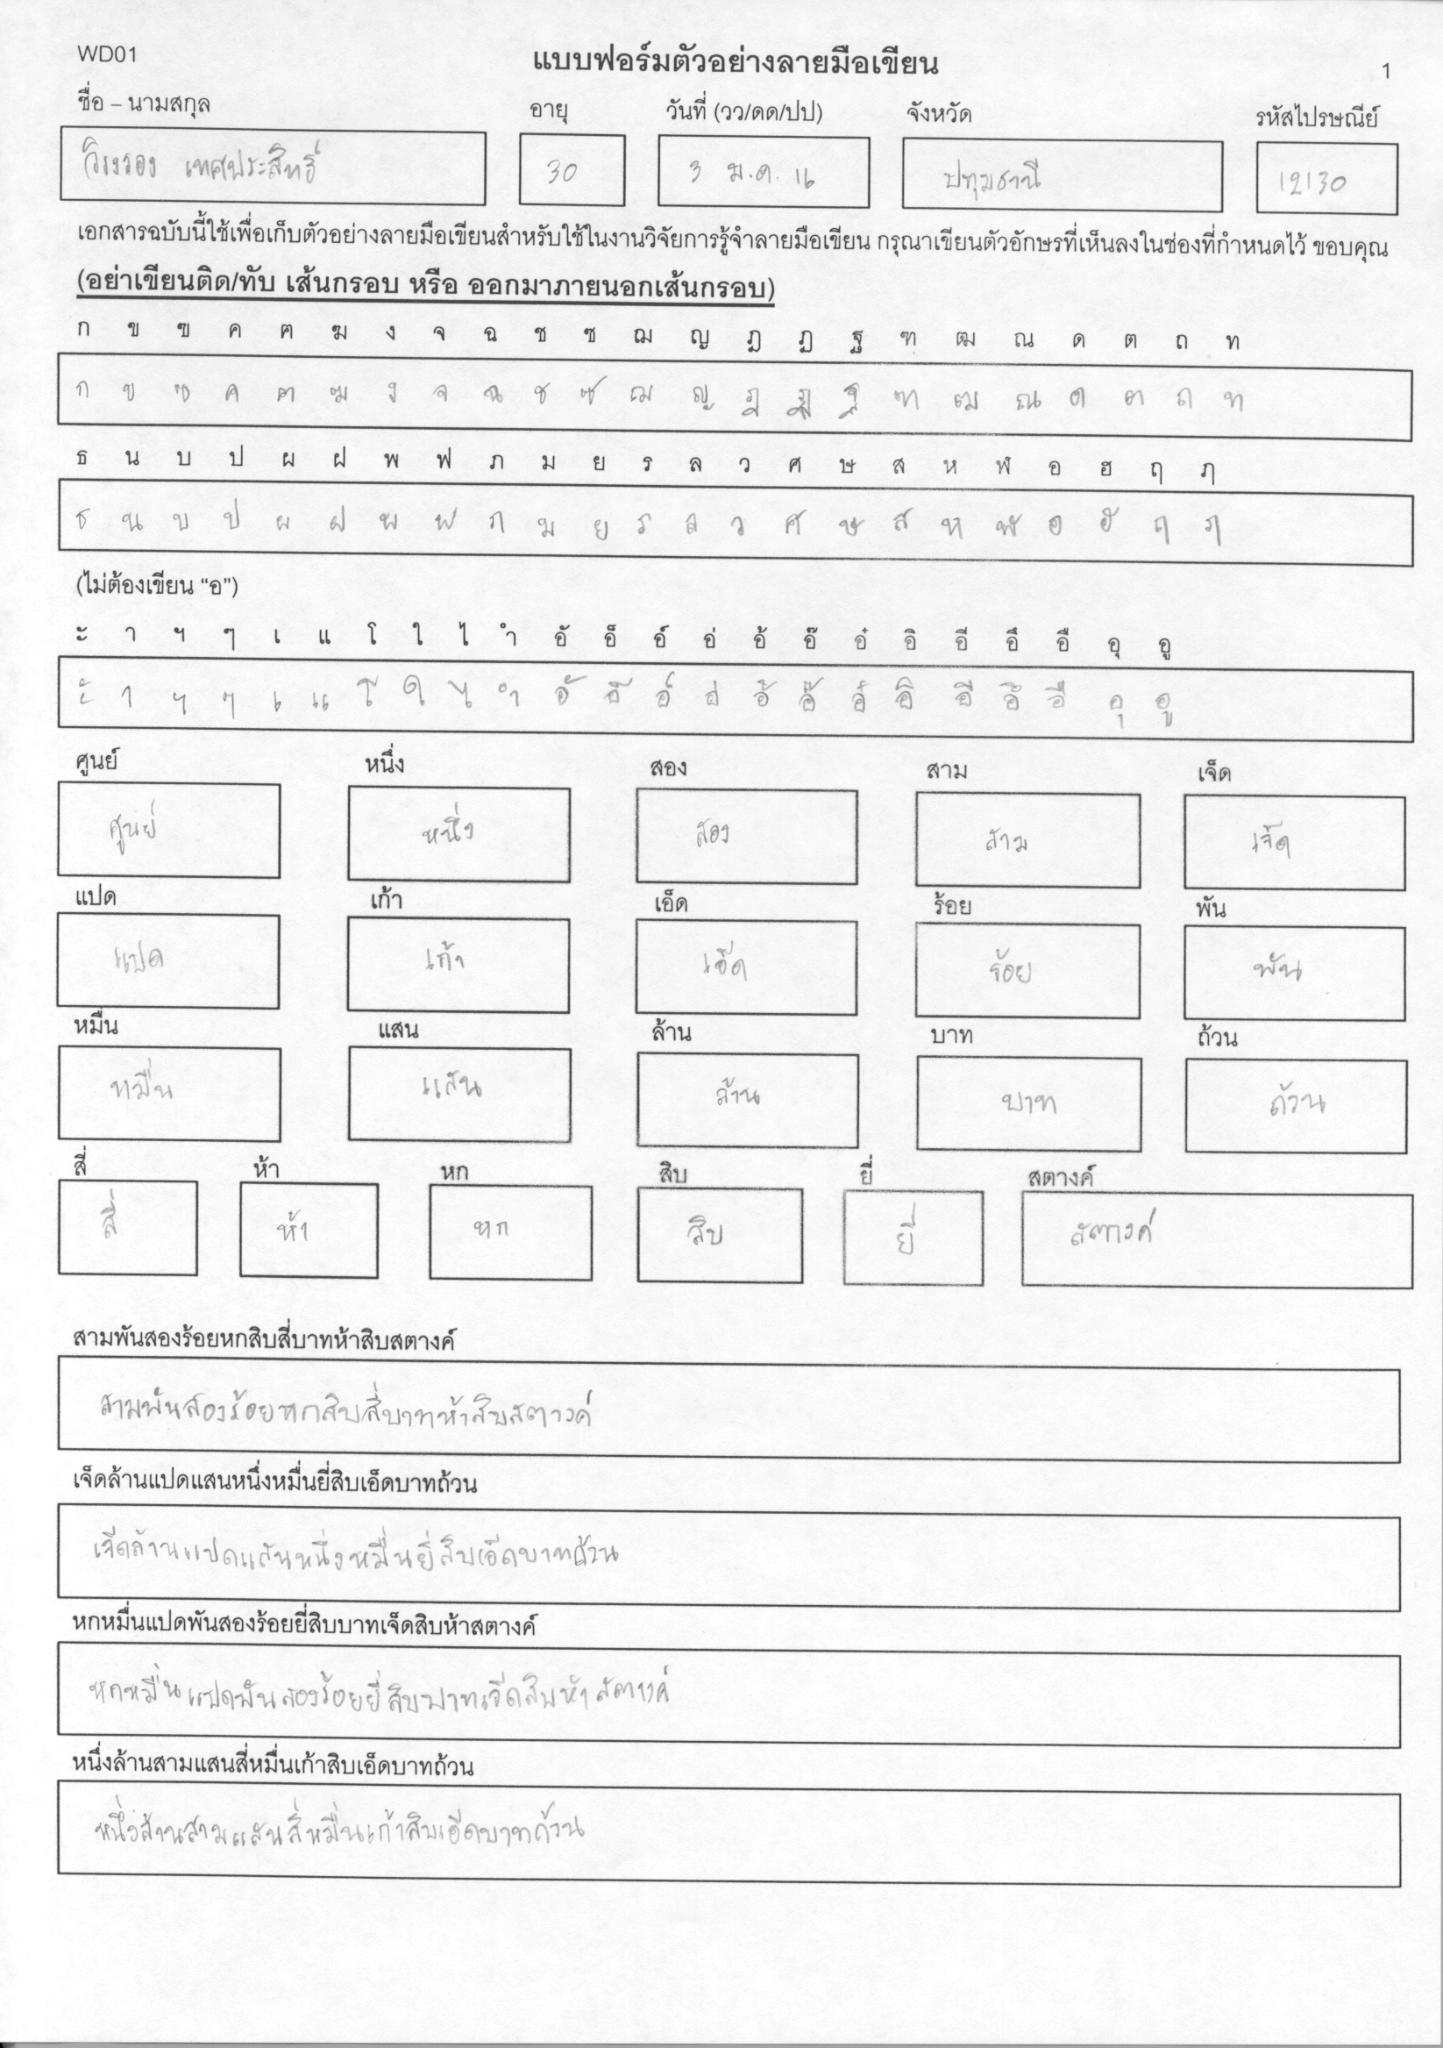 WD01
แบบฟอร์มตัวอย่างลายมือเขียน
1
ชื่อ – นามสกุล อายุ วันที่ (วว/ดด/ปป) จังหวัด รหัสไปรษณีย์
เทศประสิทธิ์ 30 3 ม.ค. 16 ปทุมธานี 12130
เอกสารฉบับนี้ใช้เพื่อเก็บตัวอย่างลายมือเขียนสำหรับใช้ในงานวิจัยการรู้จำลายมือเขียน กรุณาเขียนตัวอักษรที่เห็นลงในช่องที่กำหนดไว้ ขอบคุณ
(อย่าเขียนติด/ทับ เส้นกรอบ หรือ ออกมาภายนอกเส้นกรอบ)
ก ข ฃ ค ฅ ฆ ง จ ฉ ช ซ ฌ ญ ฎ ฏ ฐ ฑ ฒ ณ ด ต ถ ท
ก ข ฃ ค ฅ ฆ ง จ ฉ ช ซ ฌ ญ ฎ ฏ ฐ ฑ ฒ ณ ด ต ถ ท
ธ น บ ป ผ ฝ พ ฟ ภ ม ย ร ล ว ศ ษ ส ห ฬ อ ฮ ฤ ฦ
ธ น บ ป ผ ฝ พ ฟ ภ ม ย ร ล ว ศ ษ ส ห ฬ อ ฮ ฤ ฦ
(ไม่ต้องเขียน “อ”)
ะ า ฯ ๆ เ แ โ ใ ไ ำ อั อ็ อ์ อ่ อ้ อ๊ อ๋ อิ อี อึ อื อุ อู
ะ า ฯ ๆ เ แ โ ใ ไ ำ อั อ็ อ์ อ่ อ้ อ๊ อ๋ อิ อี อึ อื อุ อู
ศูนย์ หนึ่ง สอง สาม เจ็ด
ศูนย์ หนึ่ง สอง สาม เจ็ด
แปด เก้า เอ็ด ร้อย พัน
แปด เก้า เอ็ด ร้อย พัน
หมื่น แสน ล้าน บาท ถ้วน
หมื่น แสน ล้าน บาท ถ้วน
สี่ ห้า หก สิบ ยี่ สตางค์
สี่ ห้า หก สิบ ยี่ สตางค์
สามพันสองร้อยหกสิบสี่บาทห้าสิบสตางค์
สามพันสองร้อยหกสิบสี่บาทห้าสิบสตางค์
เจ็ดล้านแปดแสนหนึ่งหมื่นยี่สิบเอ็ดบาทถ้วน
เจ็ดล้านแปดแสนหนึ่งหมื่นยี่สิบเอ็ดบาทถ้วน
หกหมื่นแปดพันสองร้อยยี่สิบบาทเจ็ดสิบห้าสตางค์
หกหมื่นแปดพันสองร้อยยี่สิบบาทเจ็ดสิบห้าสตางค์
หนึ่งล้านสามแสนสี่หมื่นเก้าสิบเอ็ดบาทถ้วน
หนึ่งล้านสามแสนสี่หมื่นเก้าสิบเอ็ดบาทถ้วน